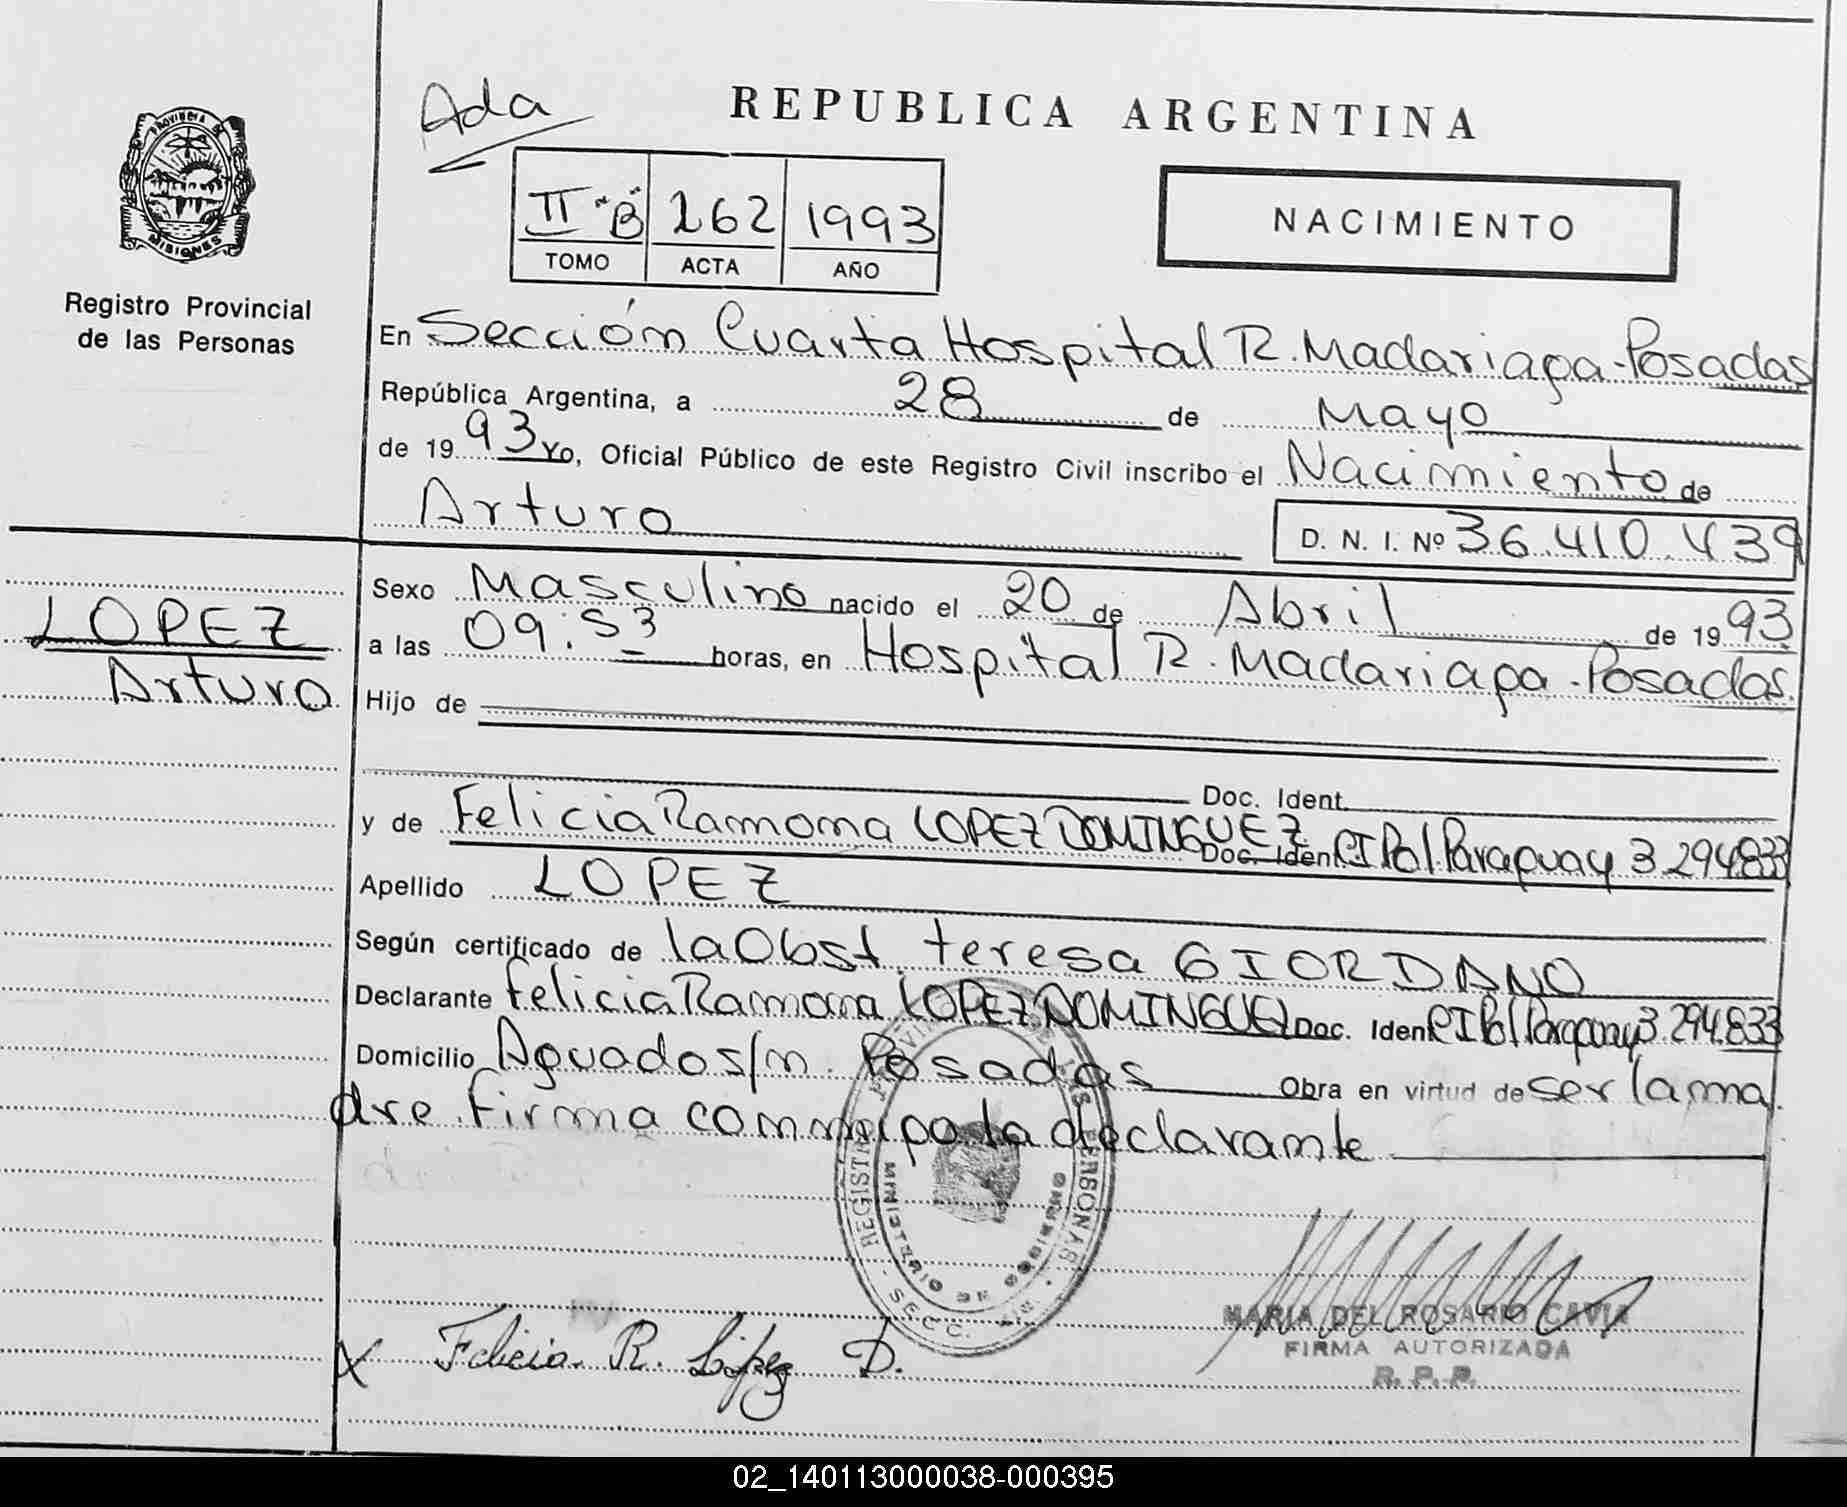 Ada
REPUBLICA ARGENTINA
PROVINCIA DE
MISIONES
II "B" 262 1993
TOMO ACTA AÑO
NACIMIENTO
Registro Provincial
de las Personas
En Sección Cuarta Hospital R. Madariaga - Posadas
República Argentina, a 28 de Mayo
de 19 93 Yo, Oficial Público de este Registro Civil inscribo el Nacimiento de
Arturo
D. N. I. Nº 36.410.439
LOPEZ
Arturo
Sexo Masculino nacido el 20 de Abril de 19 93
a las 09:53 horas, en Hospital R. Madariaga - Posadas.
Hijo de
Doc. Ident.
y de Felicia Ramona LOPEZ DOMINGUEZ Doc. Ident. CI Pol Paraguay 3.294.833
Apellido LOPEZ
Según certificado de la Obst. teresa GIORDANO
Declarante Felicia Ramona LOPEZ DOMINGUEZ Doc. Ident. CI Pol Paraguay 3.294.833
Domicilio Aguado s/n. Posadas Obra en virtud de ser la ma
dre. Firma conmigo la declarante
MINISTERIO DE GOBIERNO
SECC.
Felicia R. López D.
MARIA DEL ROSARIO CAVIA
FIRMA AUTORIZADA
R. P. P.
02_140113000038-000395